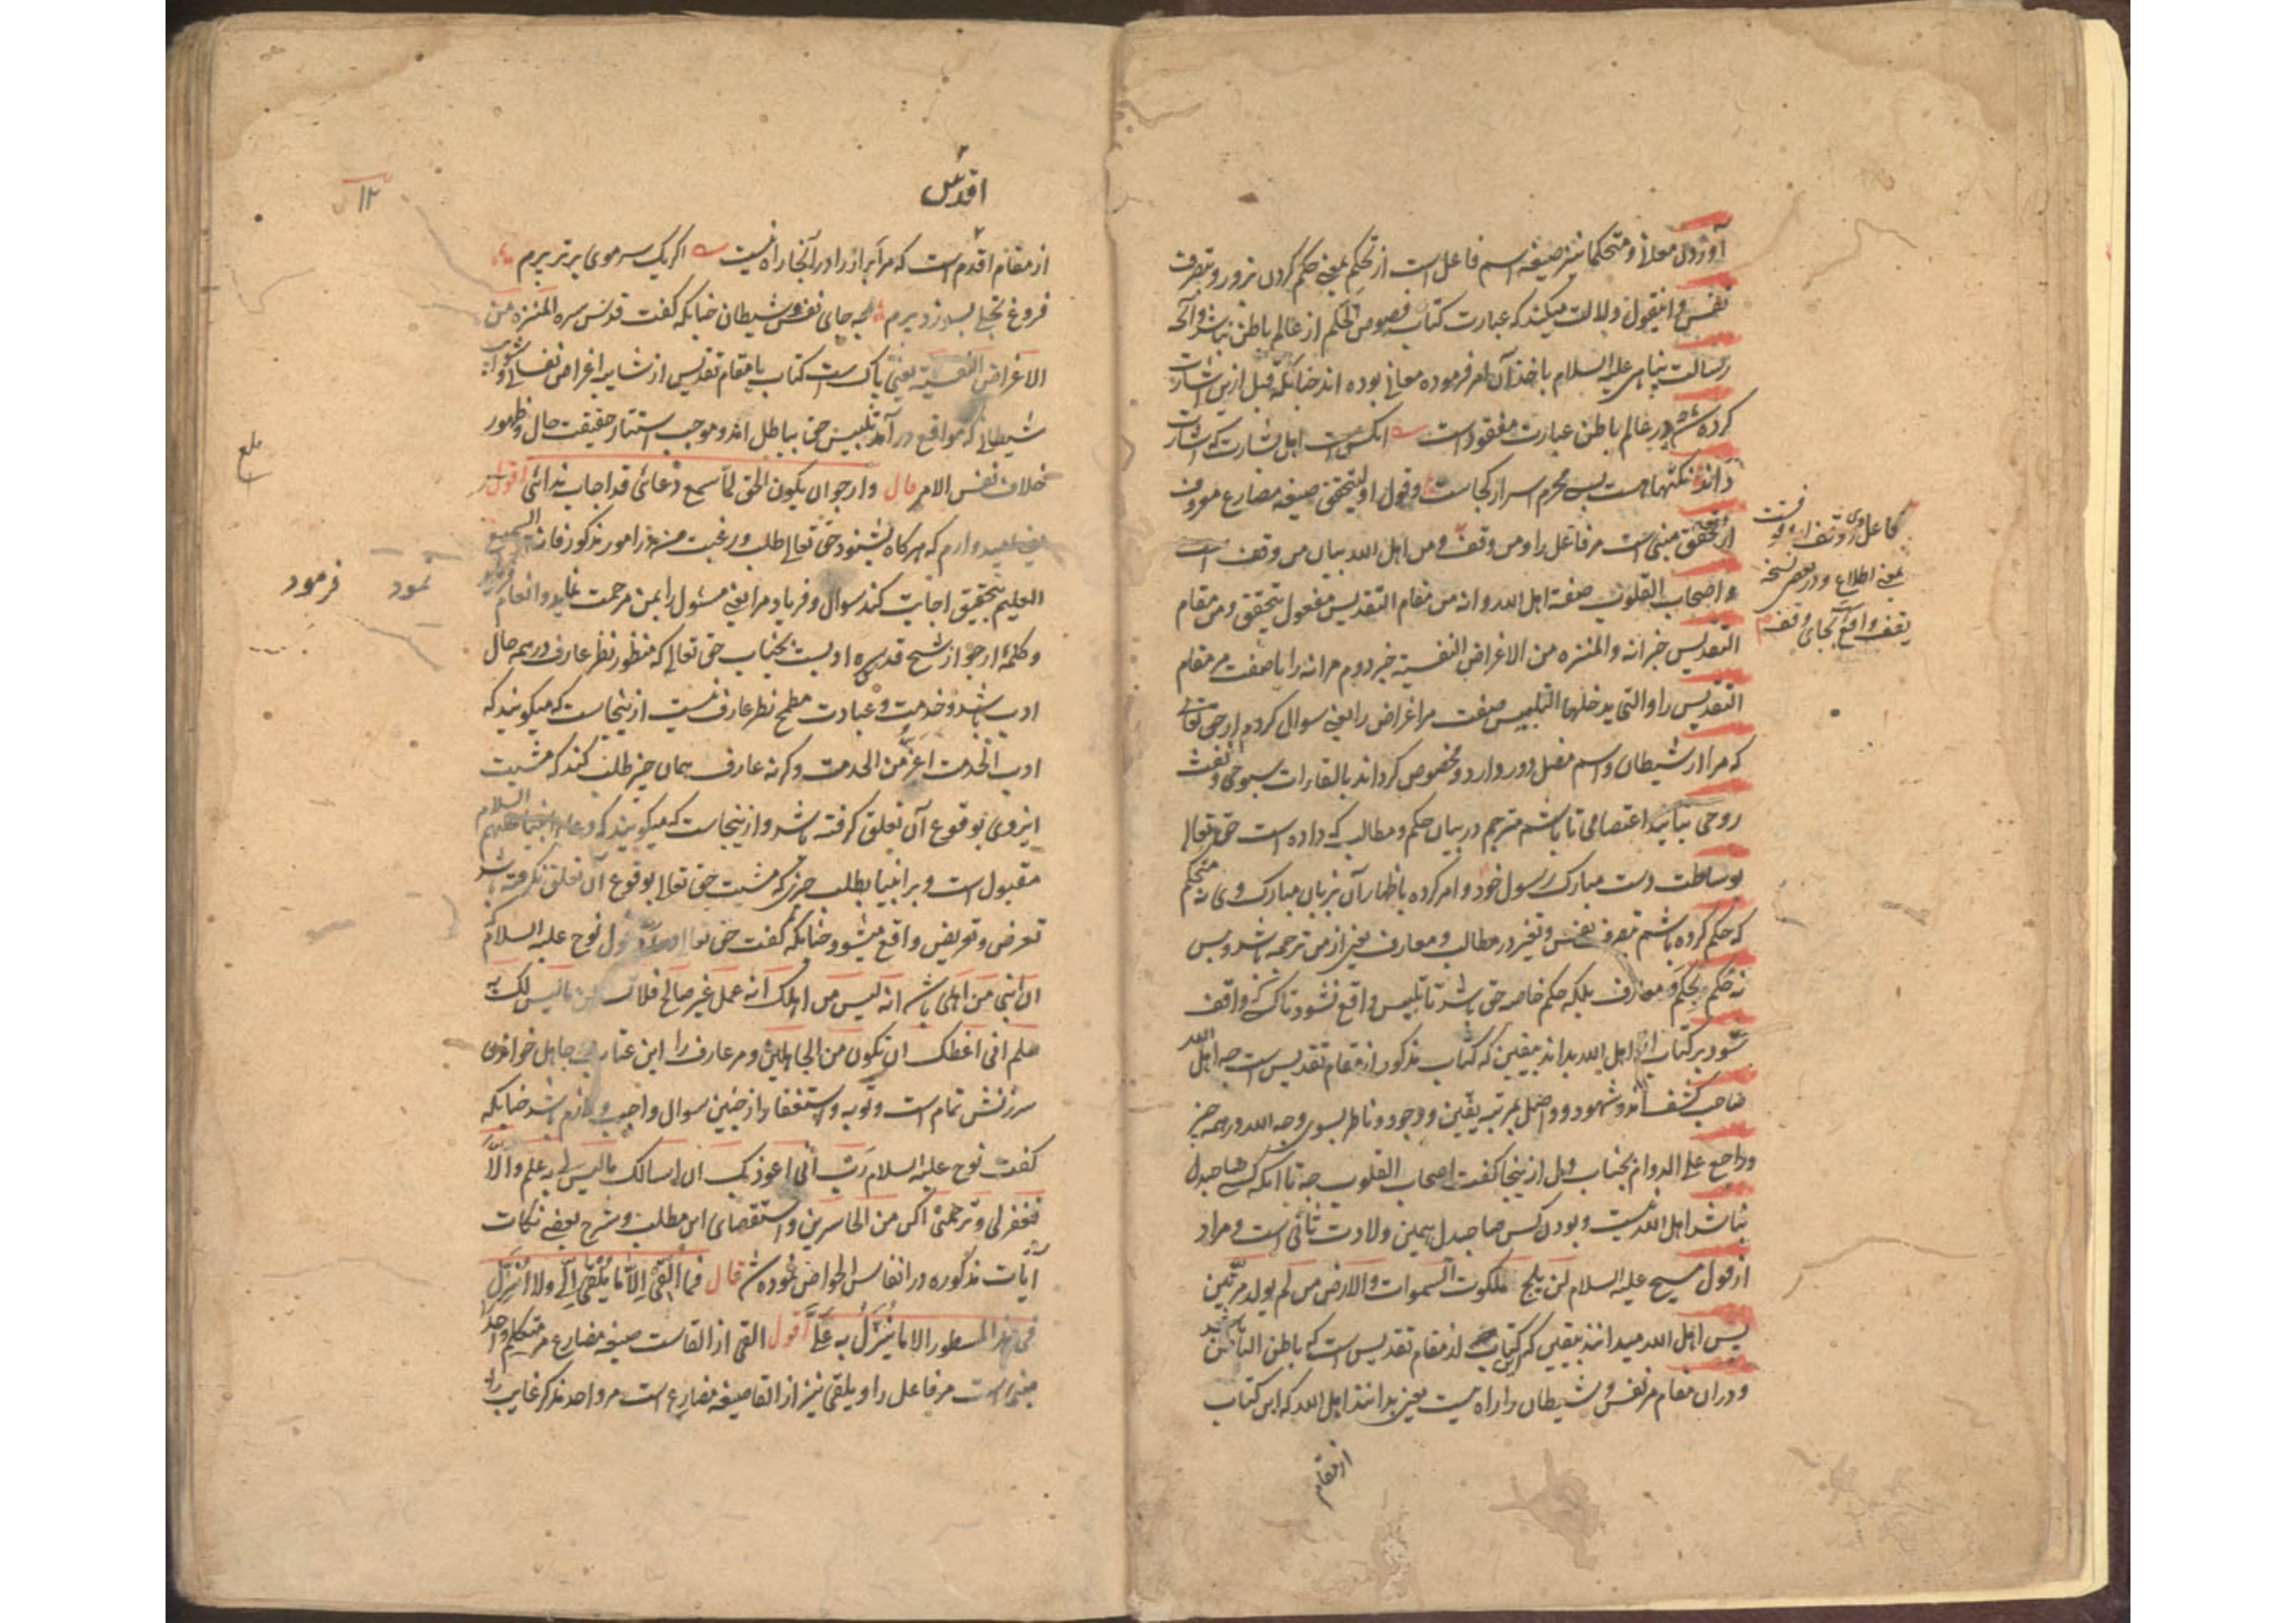 آوردن معانی و متحکما نیز صیغه اسم فاعل است از تحکم بمعنی حکم کردن بزور و بتصرف
نفس و اینقول دلالت میکند که عبارت کتاب فصوص الحکم از عالم باطن نباشد و آنچه
رسالت پناهی علیه السلام باخذ آن امر فرموده معانی بوده اند چنانکه قبل ازین اشارت
کرده شد و در عالم باطن عبارت مفقود است آنکس است اهل بشارت که اشارت
داند نکتها هست بسی محرم اسرار کجاست و قول او لیتحقق صیغه مضارع معروف
از تحقق مبنی است مر فاعل را و من وقف و من اهل الله بیان من وقف است
و اصحاب القلوب صفة اهل الله و انه من مقام التقدیس مفعول یتحقق و من مقام
التقدیس خبر انه و المنزه من الاغراض النفسیة خبر دوم مر انه را یا صفت مر مقام
التقدیس را و التی یدخلها التلبیس صفت مر اغراض را یعنی سوال کردم از حق تعالی
که مرا از شیطان و اسم مضل دور دارد و مخصوص گرداند بالقاءات سبوحی و نفث
روحی بتایید اعتصامی تا باشم مترجم در بیان حکم و مطالب که داده است حق تعالی
بوساطت دست مبارک رسول خود و امر کرده باظهار آن بزبان مبارک وی نه متحکم
که حکم کرده باشم بتصرف نفس و تغیر در مطالب و معارف یعنی از من ترجمه باشد و بس
نه حکم بحکم و معارف بلکه حکم خاصه حق باشد تا تلبیس واقع نشود تا کسی که واقف
شود بر کتاب از اهل الله بداند بیقین که کتاب مذکور از مقام تقدیس است چه اهل الله
صاحب کشف اند و شهود و واصل بمرتبه یقین و وجود و ناظر بسوی وجه الله در همه چیز
و راجع علی الدوام بجناب وی از ینجا گفت اصحاب القلوب چه تا آنکه کسی صاحبدل
نباشد اهل الله نیست و بودن کس صاحبدل همین ولادت ثانی است و مراد
از قول مسیح علیه السلام لن یلج ملکوت السموات و الارض من لم یولد مرتین
پس اهل الله میدانند بیقین که این کتاب از مقام تقدیس است که باطن الباطن باشد
و در ان مقام مر نفس و شیطان را راه نیست یعنی بدانند اهل الله که این کتاب
از مقام
بمعنی اطلاع و در بعض نسخه
یقف واقع بجای وقف
۱۲
اقدس
از مقام اقدم است که مر ابراز را در آنجا راه نیست اگر یک سر موی برتر پرم
فروغ تجلی بسوزد پرم چه جای نفس و شیطان چنانکه گفت قدس سره المنزه من
الاغراض النفسیة یعنی پاک است کتاب یا مقام تقدیس از شایبه اغراض نفسانی و شوایب
شیطانی که مواقع در آمد تلبیس حق بباطل اند و موجب استتار حقیقت حال و ظهور
خلاف نفس الامر قال و ارجو ان یکون الحق لما سمع دعائی قد اجاب ندائی اقول
یعنی امیدوارم که هرگاه بشنود حق تعالی طلب و رغبت من در امور مذکور فانه السمیع
العلیم بتحقیق اجابت کند سوال و فریاد مرا یعنی مسئول را بمن مرحمت نماید و انعام
و کلمه ارجو از شیخ قدس سره ادبست بجناب حق تعالی که منظور نظر عارف در همه حال
ادب باشد و خدمت و عبادت مطمح نظر عارف نیست از ینجاست که میگویند که
ادب الخدمت اعز من الخدمت وگرنه عارف همان چیز طلب کند که مشیت
ایزدی بوقوع آن تعلق گرفته باشد و از ینجاست که میگویند که دعا انبیا علیهم السلام
مقبول است و بر انبیا بطلب چیزی که مشیت حق تعالی بوقوع آن تعلق نگرفته باشد
تعرض و تعریض واقع میشود چنانکه گفت حق تعالی در رد قول نوح علیه السلام که
ان ابنی من اهلی انه لیس من اهلک انه عمل غیر صالح فلا تسئلن ما لیس لک به
علم انی اعظک ان تکون من الجاهلین و مر عارف را این عتاب جاهل خواندن
سرزنش تمام است و توبه و استغفار از چنین سوال واجب و لازم باشد چنانکه
گفت نوح علیه السلام رب انی اعوذ بک ان اسالک ما لیس لی به علم و الا
تغفر لی و ترحمنی اکن من الخاسرین و استقصای این مطلب و شرح بعضی نکات
آیات مذکوره در انفاس الخواص نموده شد قال فما القی الا ما یلقی الی و لا انزل
فی هذا المسطور الا ما ینزل به علی اقول القی از القاست صیغه مضارع متکلم واحد
مبنی است مر فاعل را و یلقی نیز از القا صیغه مضارع است مر واحد مذکر غایب را
بلغ
نمود فرمود